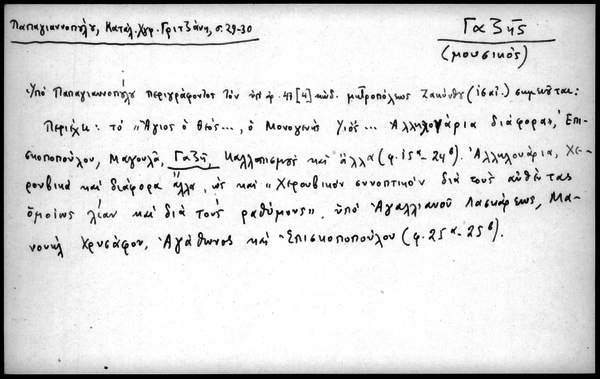 Παπαγιαννοπούλου, Κατάλ. Χφ. Γριτζάνη, σ. 29-30
Γαζῆς
(μουσικὸς)
Ὑπὸ Παπαγιαννοπούλου περιγράφοντος τὸν ὑπ' ἀρ. 47 [4] κώδ. μητροπόλεως Ζακύνθου (ις΄ αἰ.) σημειοῦται:
Περιέχει: τὸ "Ἅγιος ὁ θεός..., ὁ Μονογενὴς Υἱός... Ἀλληλουάρια διάφορα, Ἐπι-
σκοποπούλου, Μαγουλᾶ, Γαζῆ, Καλλοπισμοὺς καὶ ἄλλα (φ. 15α - 24β). Ἀλληλουάρια, Χε-
ρουβικὰ καὶ διάφορα ἄλλα, ὡς καὶ "Χερουβικὸν εὐνοπτικὸν διὰ τοὺς αὐθέντας
ὁμοίως λίαν καὶ διὰ τοὺς ραθύμους". ὑπὸ Ἀγαλλιανοῦ Λασκάρεως, Μα-
νουὴλ Χρυσάφου, Ἀγάθωνος καὶ Ἐπισκοποπούλου (φ. 25α - 25β).